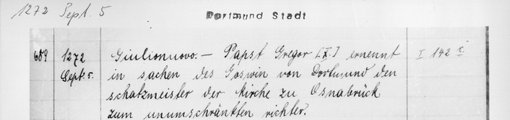 1272 Sept. 5
Dortmund Stadt
689 1272 Giulionuovo. – Papst Gregor [X.] ernennt I 142
Sept. 5. in sachen des Goswin von Dortmund den
schatzmeister der kirche zu Osnabrück
zum unumschränkten richter.